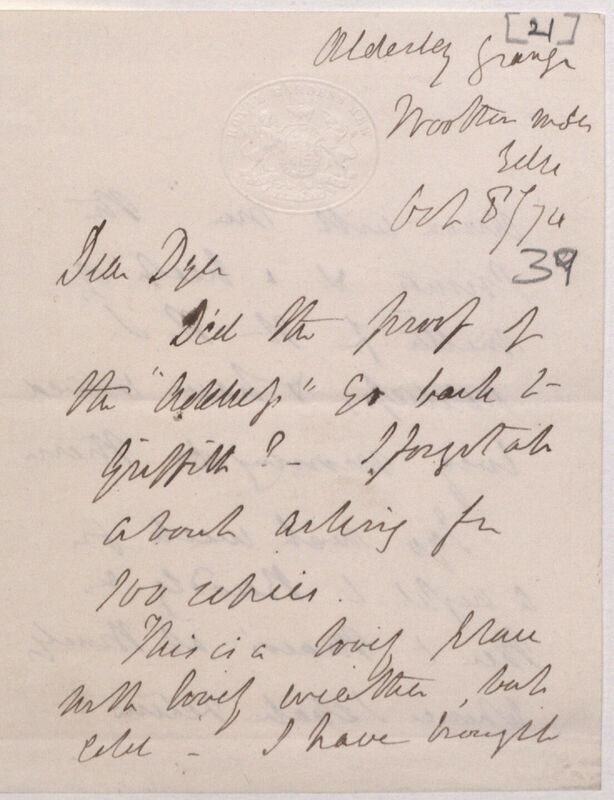 [21]
Alderley Grange
Wootton under
Edge
Oct 8/74
39
ROYAL GARDENS KEW
Dear Dyer
Did the proof of
the "Address" go back to
Griffith? — I forget all
about asking for
100 copies.
This is a lovely place
with lovely weather, but
cold — I have brought